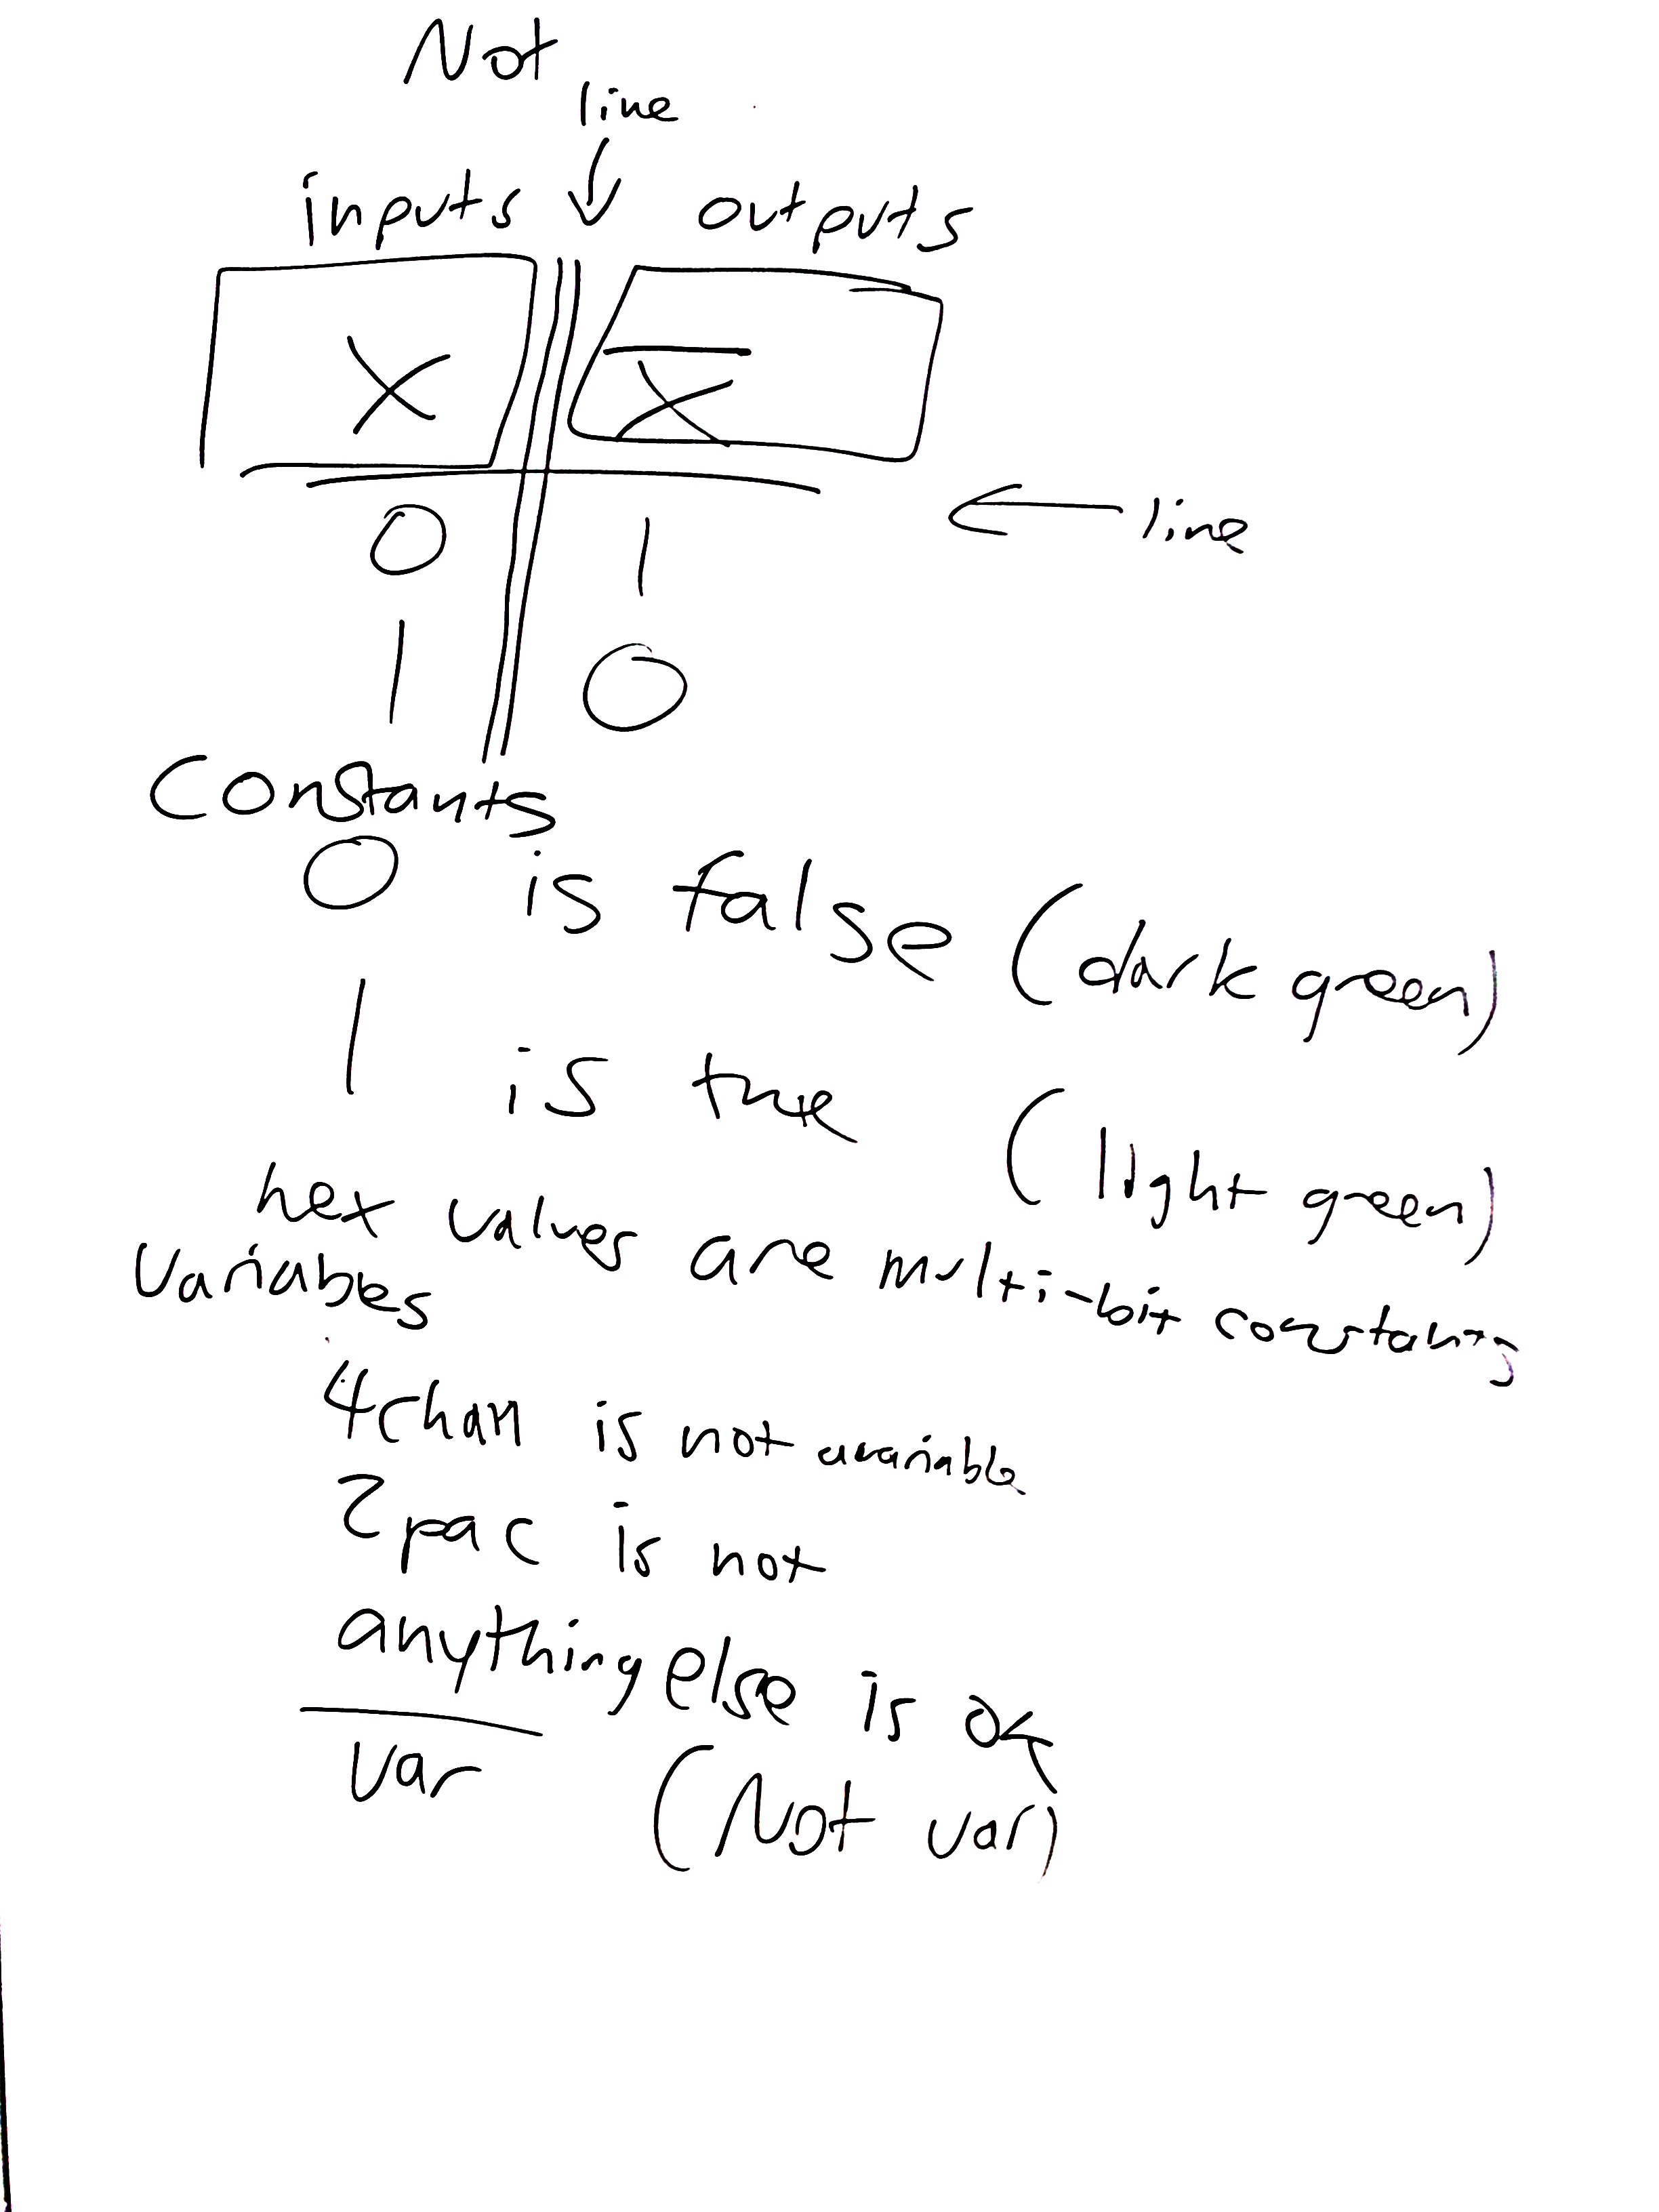 Not
line
inputs outputs
X X̅
line
0 1
1 0
Constants
0 is false (dark green)
1 is true (light green)
hex values are multi-bit constants
Variables
4chan is not avariable
2pac is not
anything else is ok
v̅a̅r̅ (Not var)